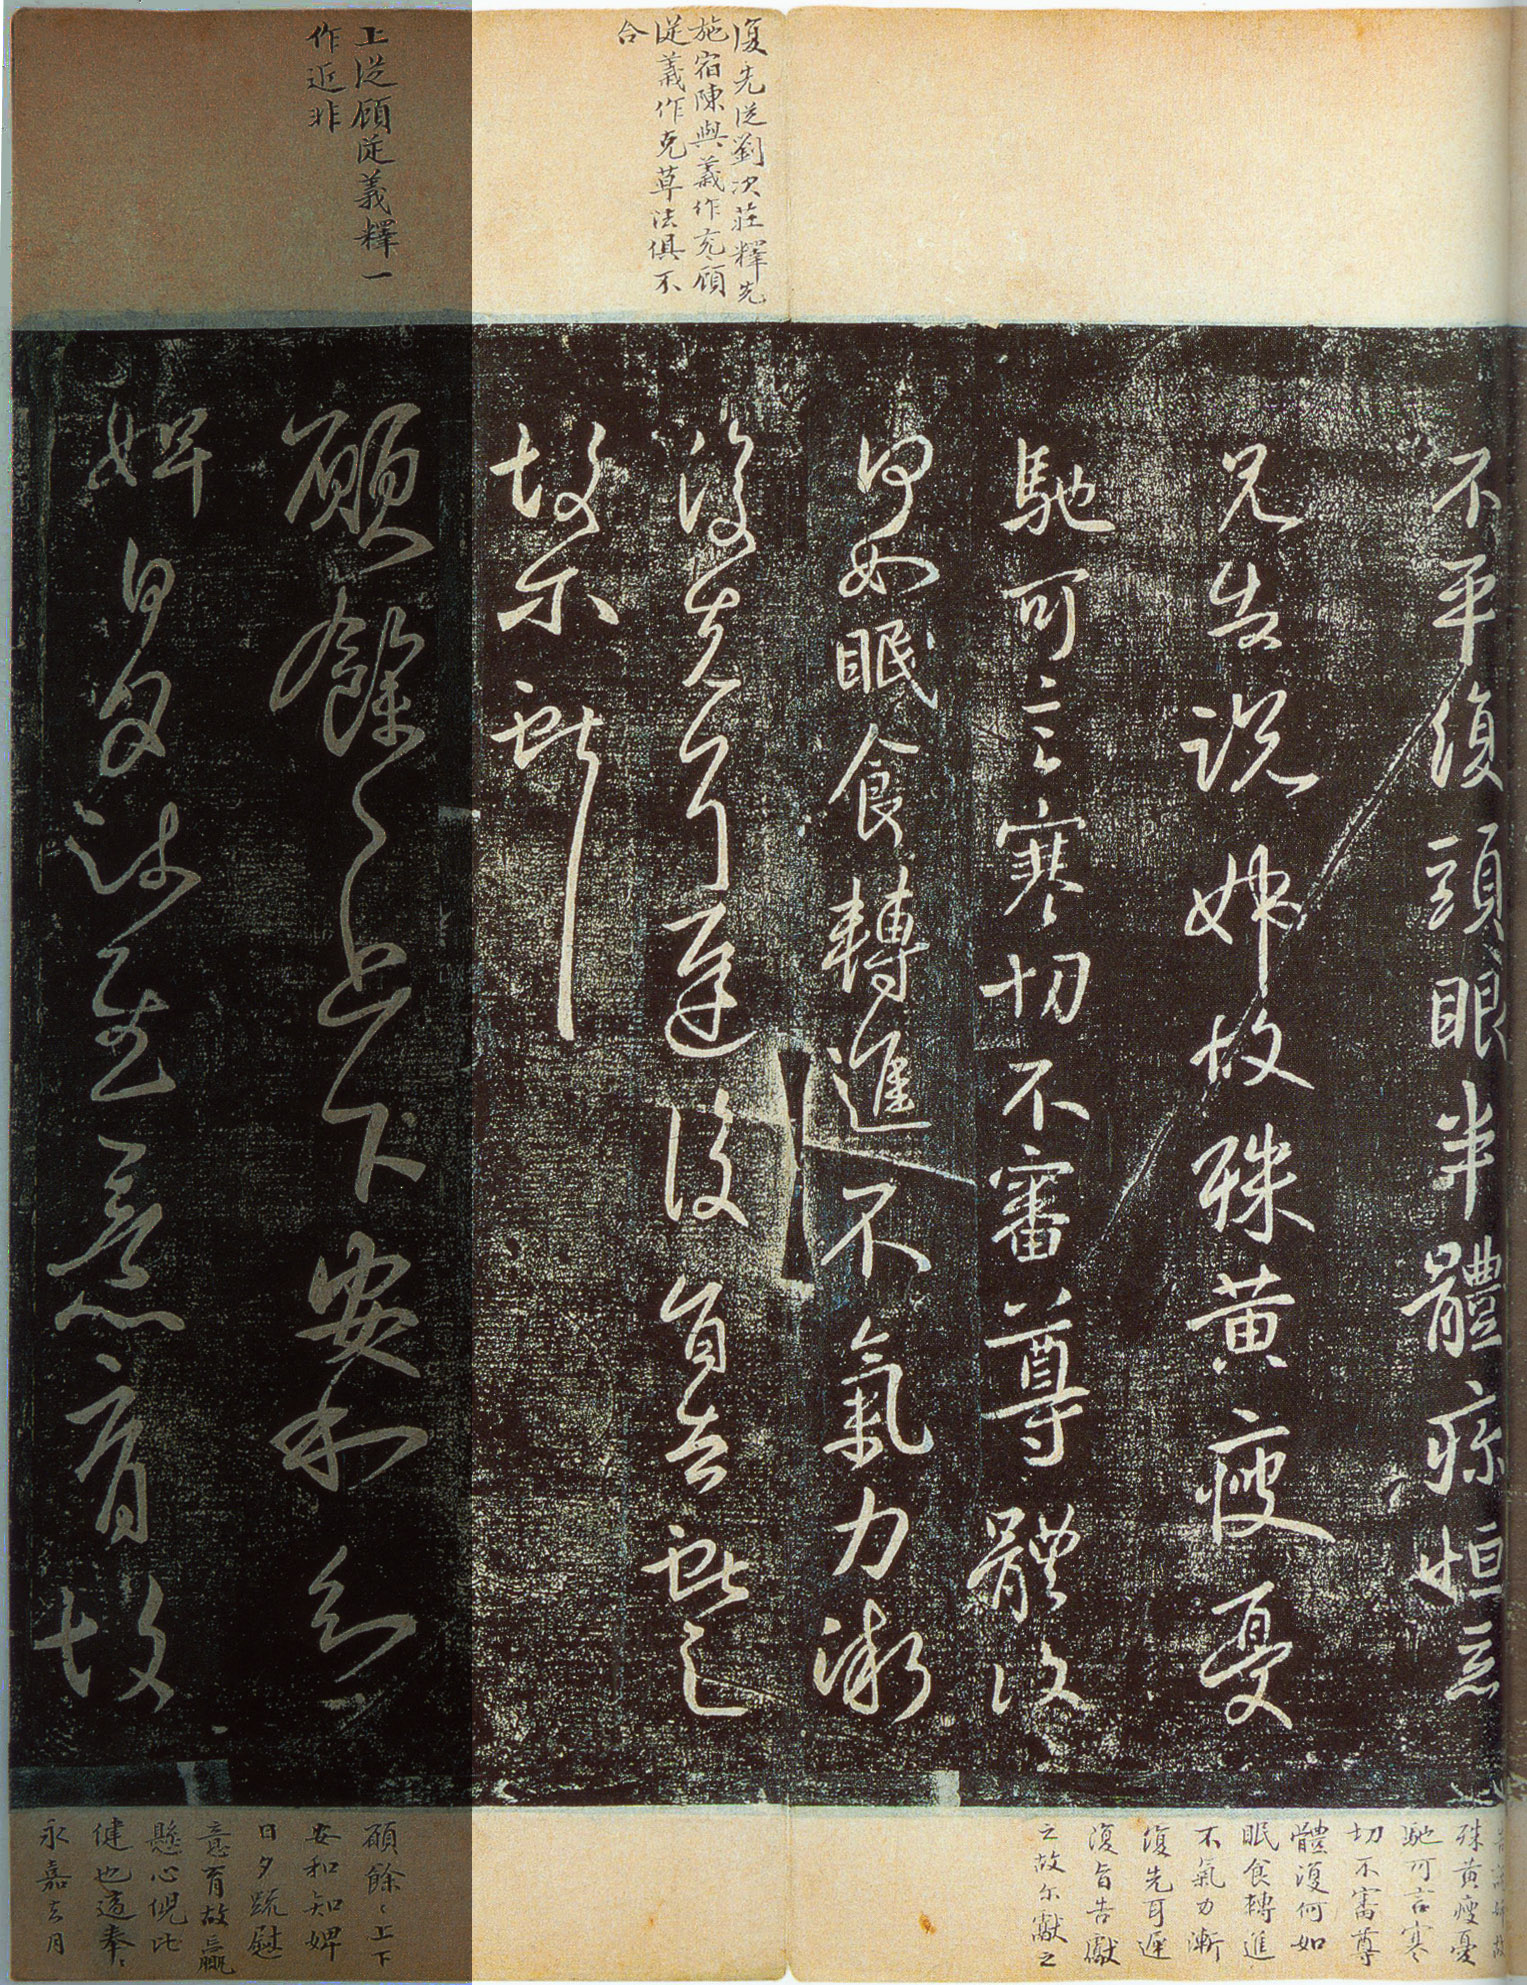 復先從劉次莊釋先
施宿陳與義作充顧
從義作克草法俱不
合
上從顧從義釋一
作近非
不平復頭眼半體疹恒惡
兄告說姊故殊黃瘦憂
馳可言寒切不審尊體復
何如眠食轉進不氣力漸
復先耳遲復旨告獻之
故尔獻
願餘上下安和知
婢日夕疏慰意育故
殊黃瘦憂
馳可言寒
切不審尊
體復何如
眠食轉進
不氣力漸
復先耳遲
復旨告獻
之故尔獻之
願餘〻上下
安和知婢
日夕疏慰
意育故羸
懸心倪比
健也適奉〻
永嘉去月